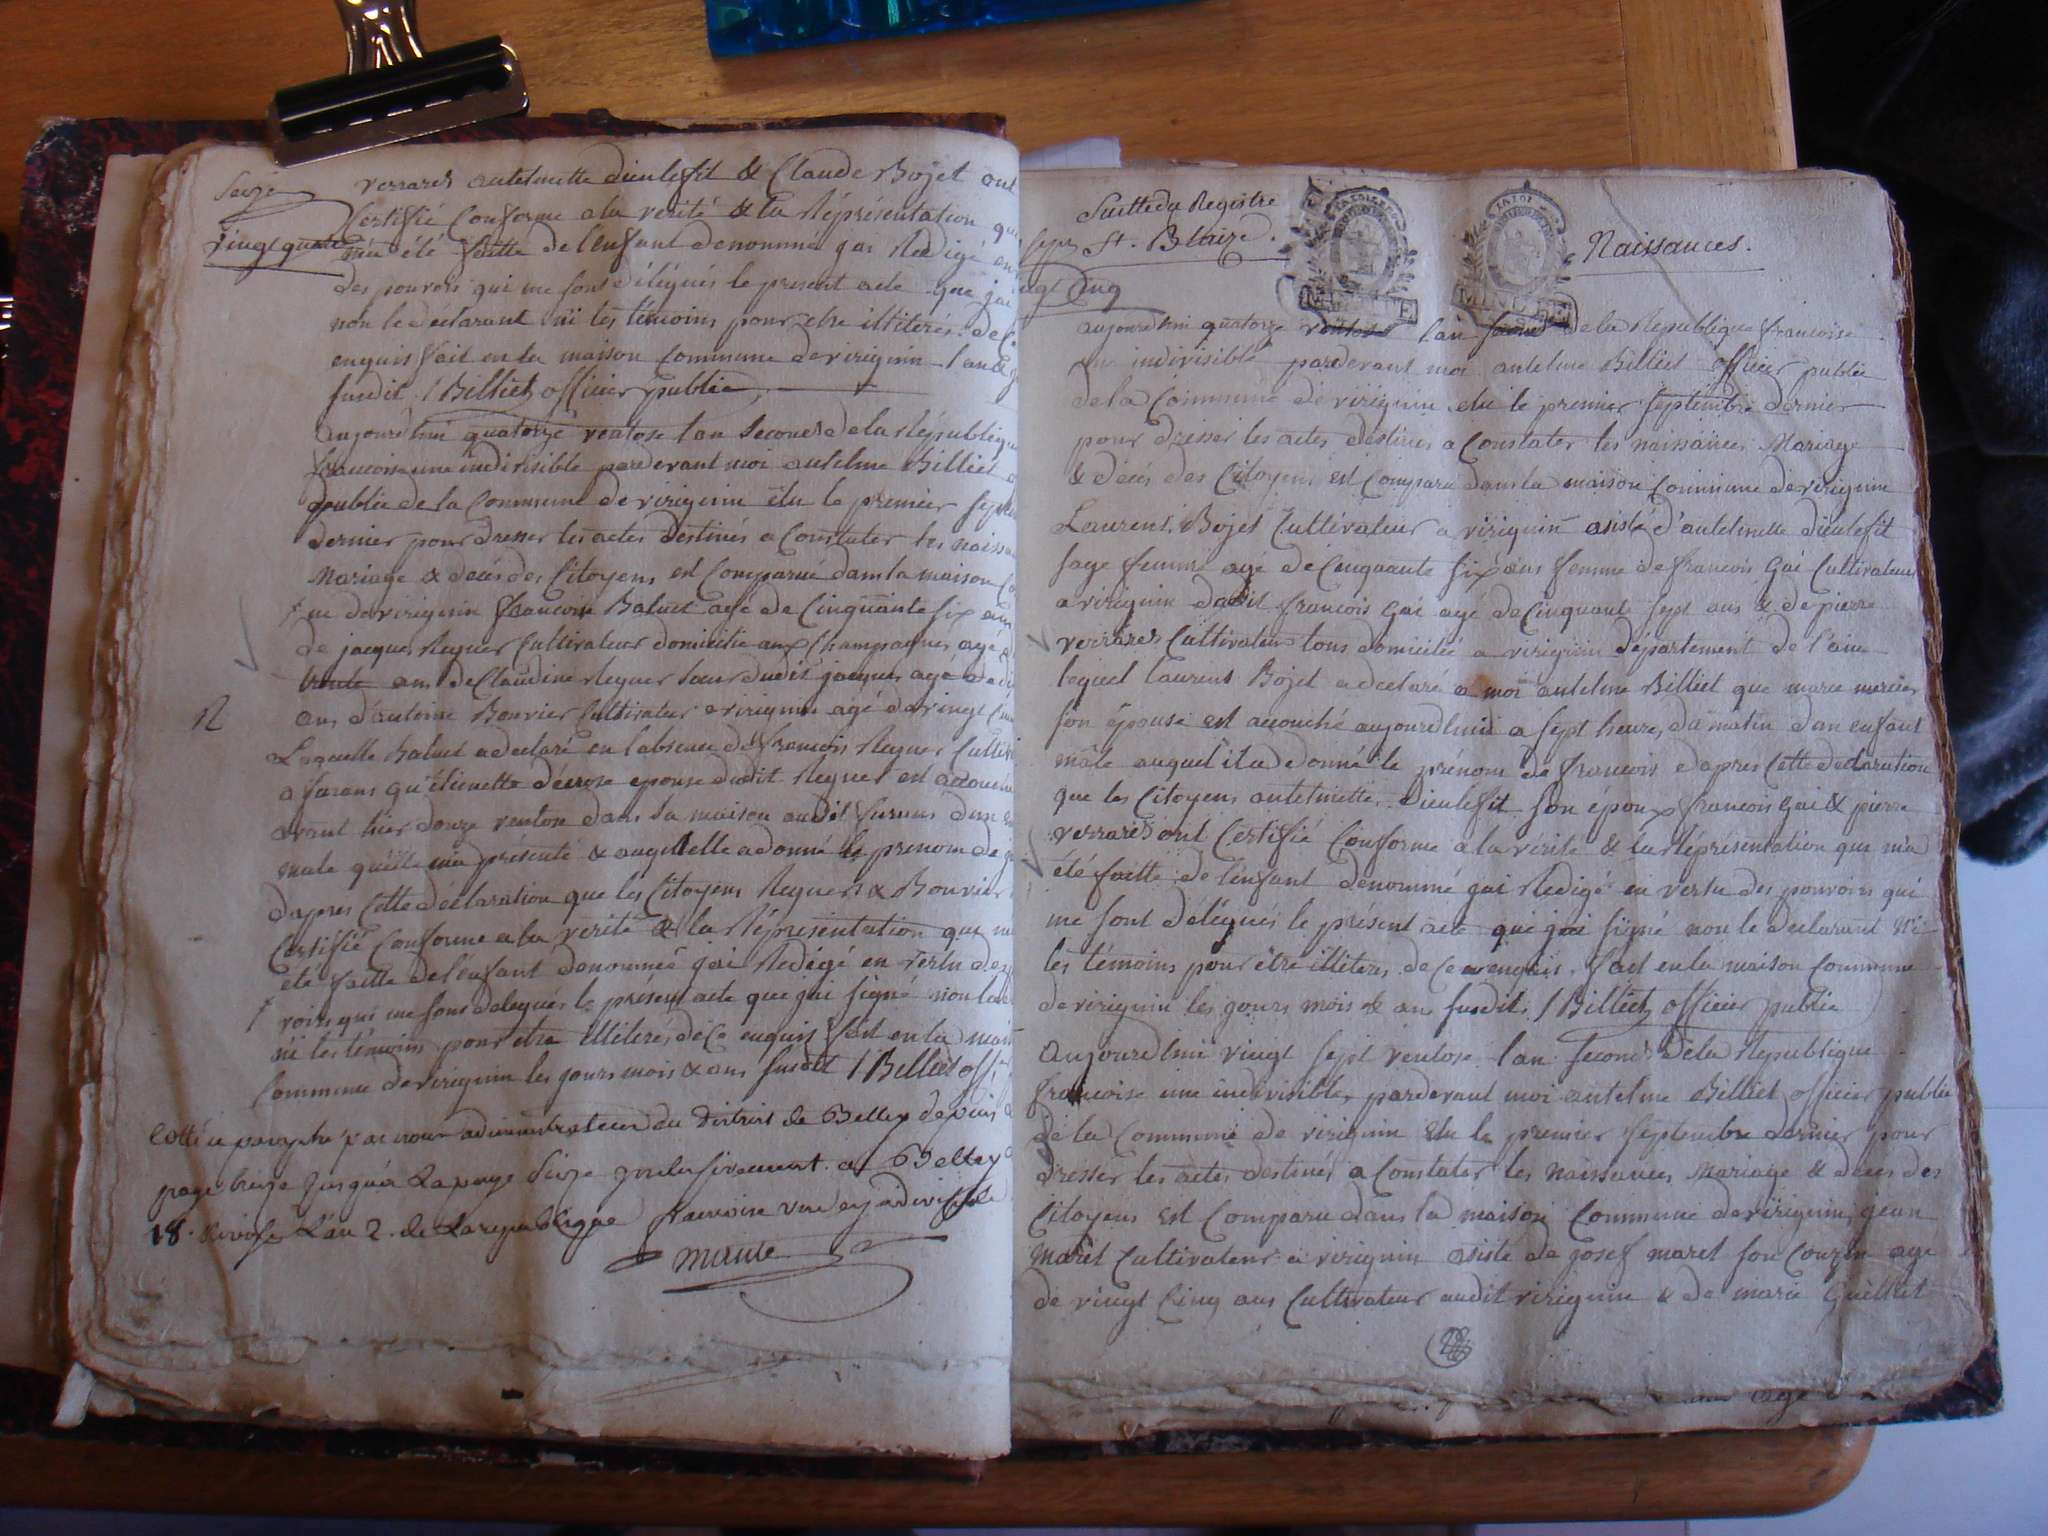 Seize
vingt quatre
verrared antelmette dieulefit & Claude Bojet ont
Certifié Conforme a la verité & la Répréséntation que
m'a été faitte de l'enfant denommé jai Redigé en
des pouvoirs qui me sont délégués le present acte que jai
non le déclarant ni les témoins pour etre illiterés de Ce
enquis fait en la maison Commune de virignin l'an &
susdit / Billiet officier public
aujourdhui quatorze ventose lan Second de la République
francoise une indivisible pardevant moi antelme Billiet
public de la Commune de virignin élu le premier
dernier pour dresser les actes destinés a Constater les
Mariage & decés des Citoyens est Comparue dans la maison
ne de virignin francoise Baluet agé de Cinquante six ans
de jacques Reguer Cultivateur domicilie aux Champagnes agé
trente ans de Claudine Reguer soeur dudit jacques agé de
ans d'antoine Bouvier Cultivateur a virignin agé de vingt
Laquelle Baluet a declaré en l'absence de francois Reguer
a furans qu'étiennette épouse dudit Reguer est accouché
avant hier douze ventose dans sa maison audit furans dun
male quelle m'a présenté & auquel elle a donné le prenom de
dapres Cette déclaration que les Citoyens Reguers & Bouvier
Certifié Conforme a la verité & la Répresentation qui
été faitte de l'enfant denommé jai Redigé en vertu des
voirs qui me sont delegués le présent acte que jai signé non le
ni les témoins pour etre illiterés de Ce enquis fait en la
Commune de virignin les jours mois & ans susdit / Billiet off.
Cotté et paraphé par nous administrateur du District de Belley depuis
page treize jusqu'a La page Seize inclusivement a Belley
18. Nivose L'an 2. de La republique francoise une et indivisible
Suitte du Registre
St. Blaize.
Naissances.
Cinq
aujourdhui quatorze ventose l'an second de la République francoise
une indivisible pardevant moi antelme Billiet officier public
de la Commune de virignin élu le premier septémbre dernier
pour dresser les actes déstinés a Constater les naissances Mariage
& decés des Citoyens est Comparu dans la maison Commune de virignin
Laurent Bojet Cultivateur a virignin asisté d'antelmette dieulefit
sage femme agé de Cinquante six ans femme de francois Gai Cultivateur
a virignin dudit francois Gai agé de Cinquante sept ans & de pierre
verrared Cultivateur tous domiciliés a virignin département de l'ain
lequel laurent Bojet a declaré a moi antelme Billiet que marie mercier
son épouse est accouché aujourdhui a sept heures du matin dun enfant
mâle auquel il a donné le prénom de francois dapres Cette declaration
que les Citoyens antelmette Dieulefit son époux francois Gai & pierre
verrared ont Certifié Conforme a la vérité & la Répréséntation qui m'a
été faitte de l'enfant denommé jai Redigé en vertu des pouvoirs qui
me sont délégués le présent acte que jai signé non le déclarant ni
les témoins pour être illiteres de Ce enquis. fait en la maison Commune
de virignin les jours mois & an susdits / Billiet officier public
Aujourdhui vingt sept ventose l'an second de la République
francoise une indivisible, pardevant moi antelme Billiet officier public
de la Commune de virignin élu le premier septembre dernier pour
dresser les actes destinés a Constater les Naissances Mariage & decés des
Citoyens est Comparu dans la maison Commune de virignin jean
Maret Cultivateur a virignin asisté de josef maret son Couzin agé
de vingt Cinq ans Cultivateur audit virignin & de marie Guilliet